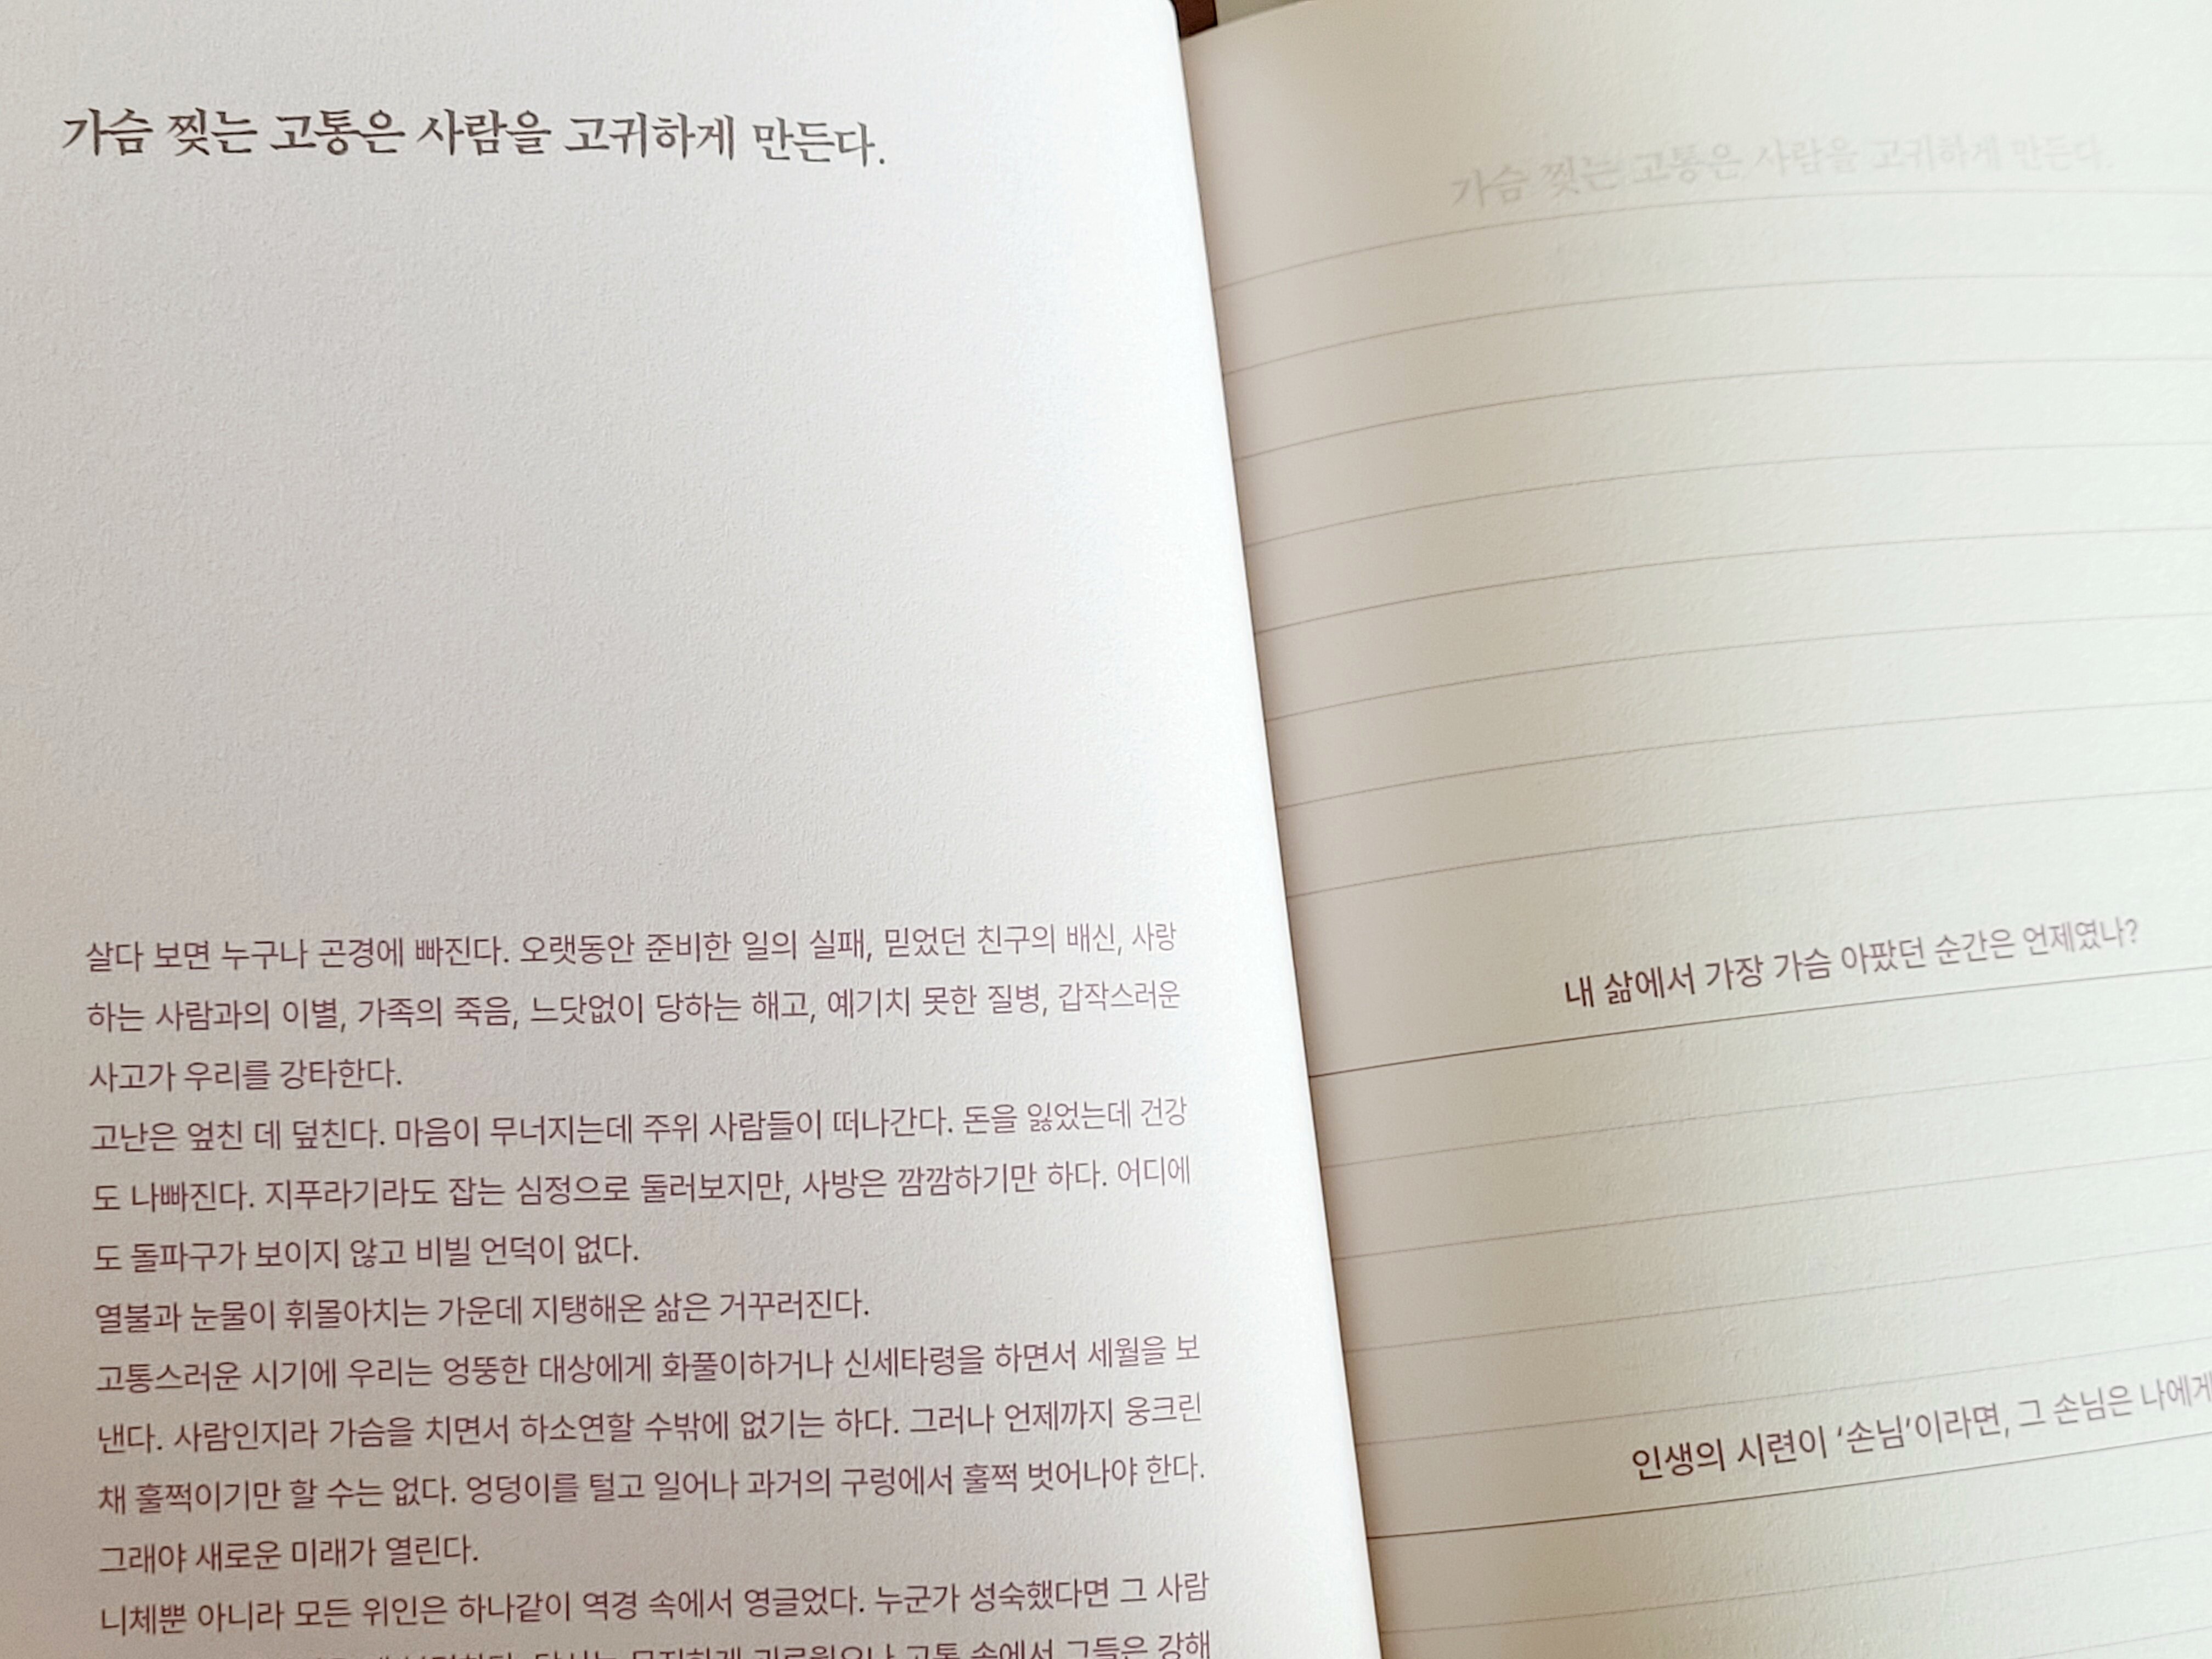 가슴 찢는 고통은 사람을 고귀하게 만든다.
살다 보면 누구나 곤경에 빠진다. 오랫동안 준비한 일의 실패, 믿었던 친구의 배신, 사랑
하는 사람과의 이별, 가족의 죽음, 느닷없이 당하는 해고, 예기치 못한 질병, 갑작스러운
사고가 우리를 강타한다.
고난은 엎친 데 덮친다. 마음이 무너지는데 주위 사람들이 떠나간다. 돈을 잃었는데 건강
도 나빠진다. 지푸라기라도 잡는 심정으로 둘러보지만, 사방은 깜깜하기만 하다. 어디에
도 돌파구가 보이지 않고 비빌 언덕이 없다.
열불과 눈물이 휘몰아치는 가운데 지탱해온 삶은 거꾸러진다.
고통스러운 시기에 우리는 엉뚱한 대상에게 화풀이하거나 신세타령을 하면서 세월을 보
낸다. 사람인지라 가슴을 치면서 하소연할 수밖에 없기는 하다. 그러나 언제까지 웅크린
채 훌쩍이기만 할 수는 없다. 엉덩이를 털고 일어나 과거의 구렁에서 훌쩍 벗어나야 한다.
그래야 새로운 미래가 열린다.
니체뿐 아니라 모든 위인은 하나같이 역경 속에서 영글었다. 누군가 성숙했다면 그 사람
고통 속에서 그들은 강해
가슴 찢는 고통은 사람을 고귀하게 만든다.
내 삶에서 가장 가슴 아팠던 순간은 언제였나?
인생의 시련이 ‘손님’이라면, 그 손님은 나에게